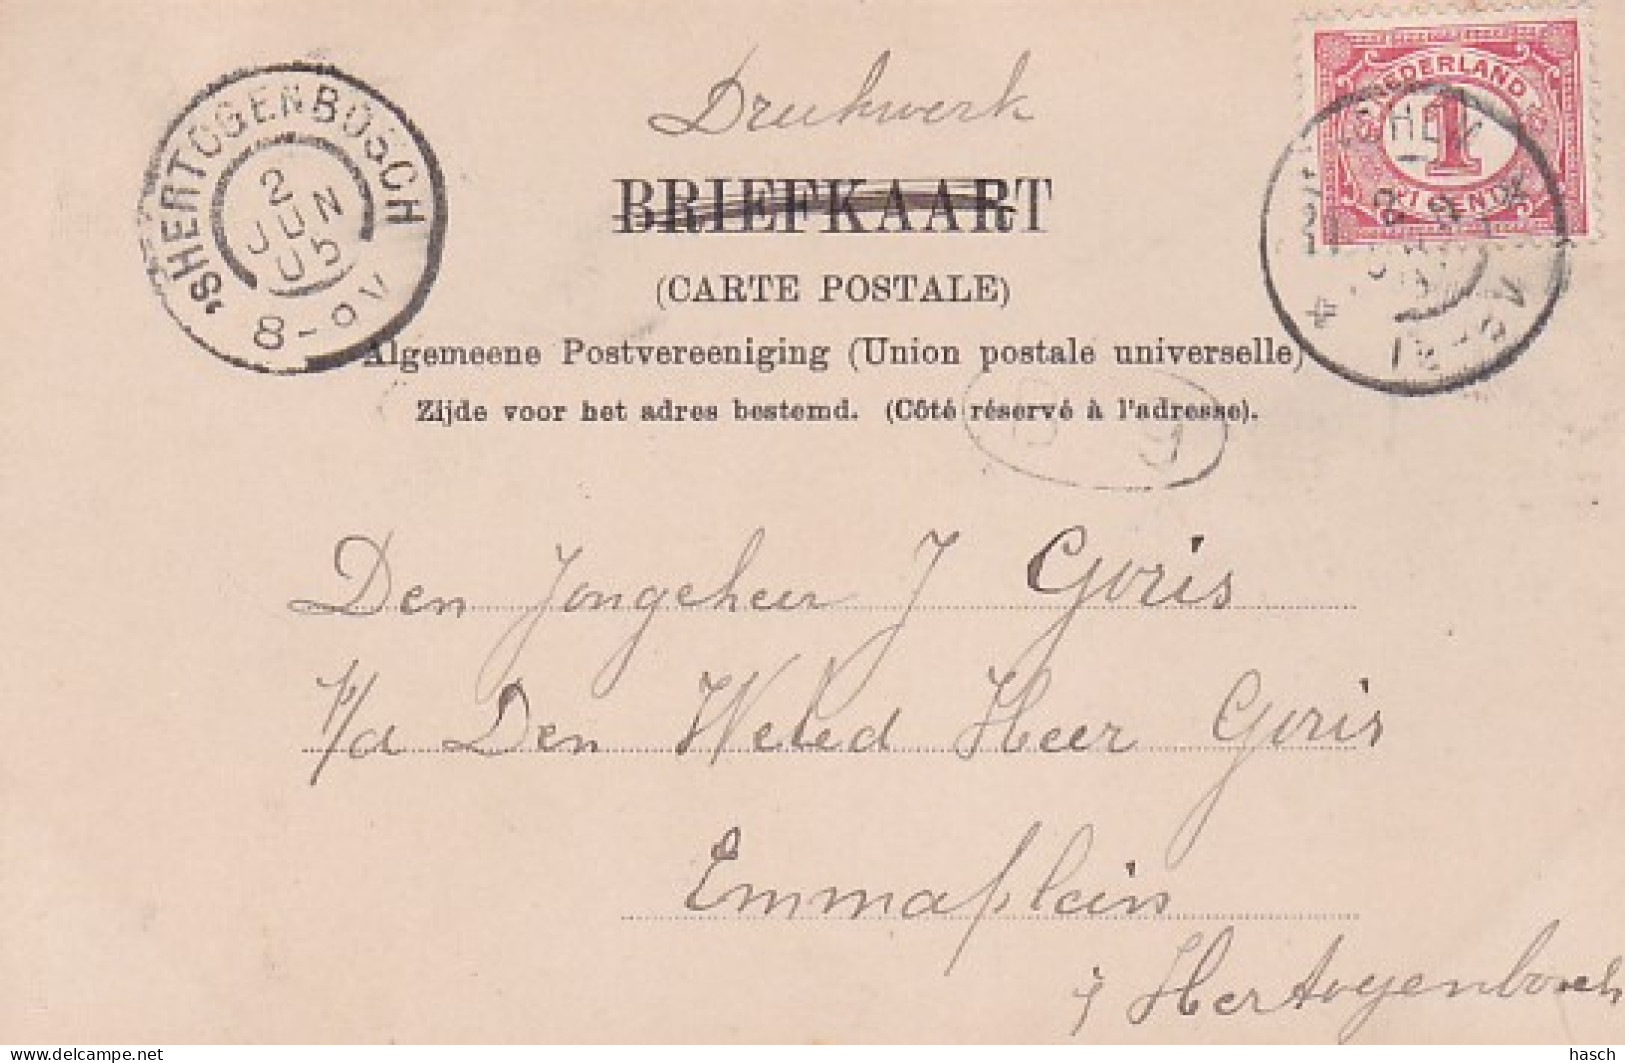 Drukwerk
NEDERLAND
1
CENT
'SHERTOGENBOSCH
2
JUN
05
8-9V
BRIEFKAART
(CARTE POSTALE)
Algemeene Postvereeniging (Union postale universelle)
Zijde voor het adres bestemd. (Côté réservé à l'adresse).
Den Jongeheer J Goris
p/a Den Weled Heer Goris
Emmaplein
s Hertogenbosch
hasch